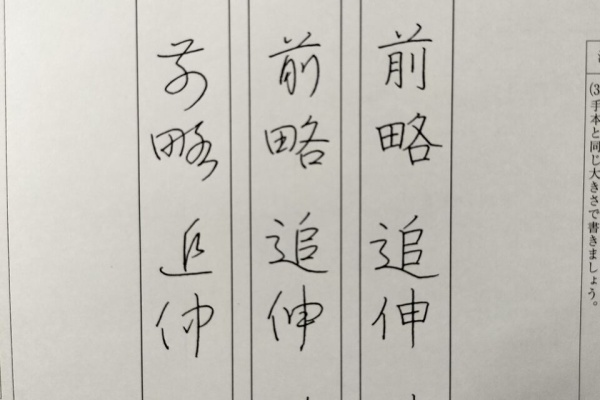 (3)手本と同じ大きさで書きましょう。
前略 追伸
前略 追伸
前略 追伸